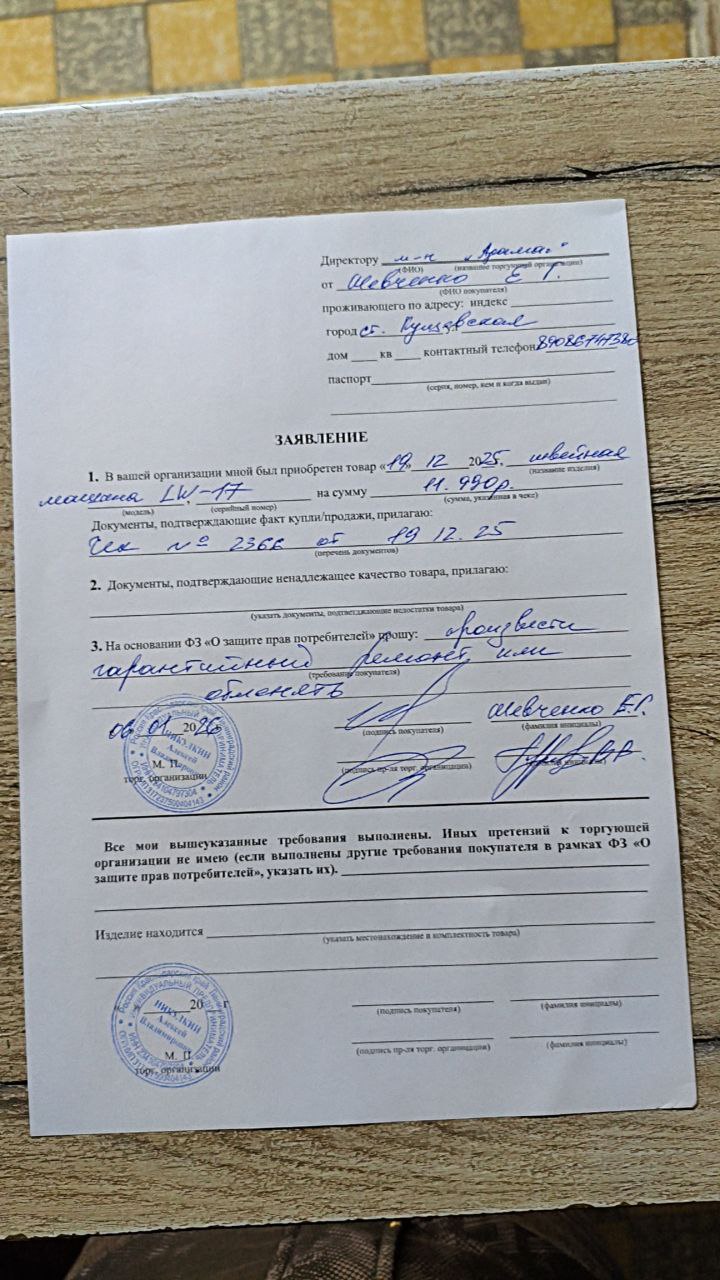 Директору м-н "Арамат"
(ФИО) (название торгующей организации)
от Шевченко Е Г.
(ФИО покупателя)
проживающего по адресу: индекс
город ст. Кущевская
дом ___ кв ___ контактный телефон
паспорт
(серия, номер, кем и когда выдан)
ЗАЯВЛЕНИЕ
1. В вашей организации мной был приобретен товар «19» 12 2025. швейная
(название изделия)
машина LW-17 на сумму 11.990р.
(модель) (серийный номер) (сумма, указанная в чеке)
Документы, подтверждающие факт купли/продажи, прилагаю:
Чек № 2366 от 19 12. 25
(перечень документов)
2. Документы, подтверждающие ненадлежащее качество товара, прилагаю:
(указать документы, подтверждающие недостатки товара)
3. На основании ФЗ «О защите прав потребителей» прошу: произвести
гарантийный ремонт или
(требование покупателя)
обменять
06 01 2026 Шевченко Е.Г.
(подпись покупателя) (фамилия инициалы)
М. П.
торг. организации
(подпись пр-ля торг. организации)
НИКУЛКИН
Алексей
Владимирович
Все мои вышеуказанные требования выполнены. Иных претензий к торгующей
организации не имею (если выполнены другие требования покупателя в рамках ФЗ «О
защите прав потребителей», указать их).
Изделие находится
(указать местонахождение и комплектность товара)
« 20 г
(подпись покупателя) (фамилия инициалы)
М. П.
торг. организации
(подпись пр-ля торг. организации) (фамилия инициалы)
НИКУЛКИН
Алексей
Владимирович